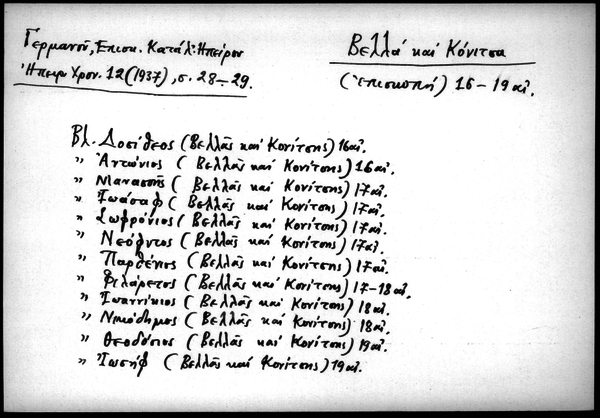 Γερμανοῦ, Επισκ. Κατάλ. Ηπείρου
Ηπειρ. Χρον. 12 (1937), σ. 28-29.
Βελλά καί Κόνιτσα
(Ἐπισκοπή) 16-19 αἰ.
Βλ. Δοσίθεος (Βελλᾶς καί Κονίτσης) 16 αἰ.
" Ἀντώνιος (Βελλᾶς καί Κονίτσης) 16 αἰ.
" Μανασσῆς (Βελλᾶς καί Κονίτσης) 17 αἰ.
" Ἰωάσαφ (Βελλᾶς καί Κονίτσης) 17 αἰ.
" Σωφρόνιος (Βελλᾶς καί Κονίτσης) 17 αἰ.
" Νεόφυτος (Βελλᾶς καί Κονίτσης) 17 αἰ.
" Παρθένιος (Βελλᾶς καί Κονίτσης) 17 αἰ.
" Φιλάρετος (Βελλᾶς καί Κονίτσης) 17-18 αἰ.
" Ἰωαννίκιος (Βελλᾶς καί Κονίτσης) 18 αἰ.
" Νικόδημος (Βελλᾶς καί Κονίτσης) 18 αἰ.
" Θεοδόσιος (Βελλᾶς καί Κονίτσης) 19 αἰ.
" Ἰωσήφ (Βελλᾶς καί Κονίτσης) 19 αἰ.